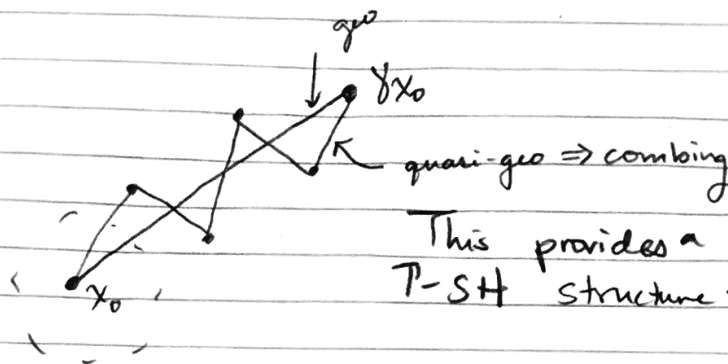 geo
γx₀
quasi-geo ⇒ combing
This provides a
T-SH structure.
x₀